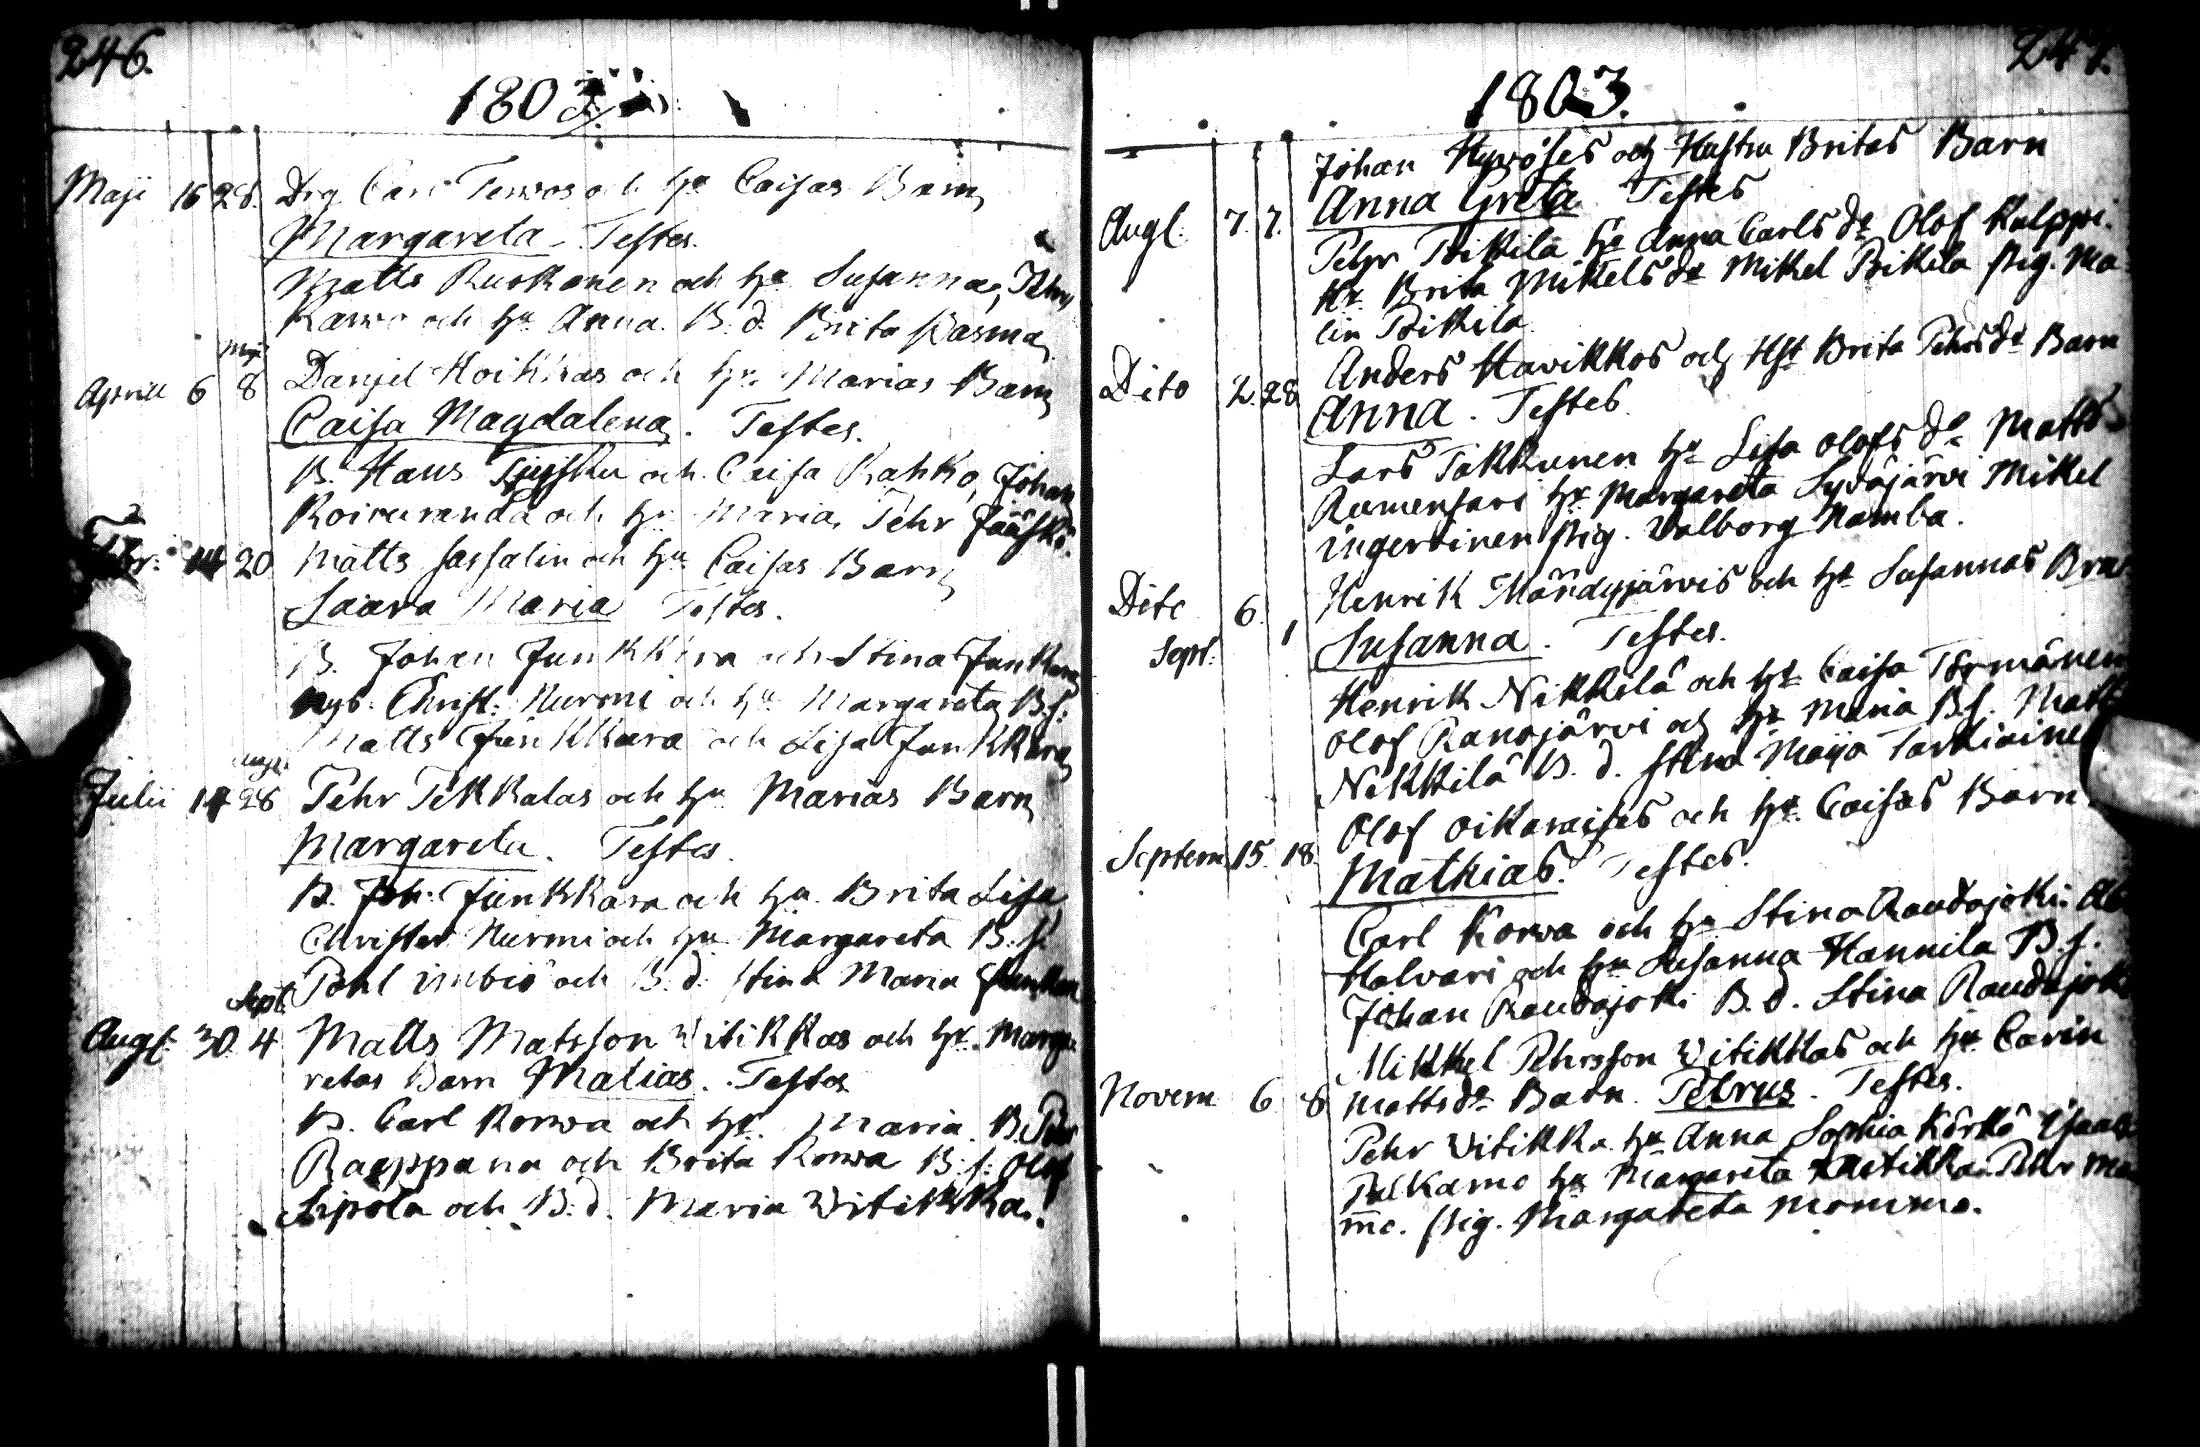 246.
1803
Maji 16 28. Drg Carl Terwos och hu Caisas Barn
Margareta. Testes.
Matts Ruokanen och hu Susanna, Pehr
Karwo och hu Anna. B. d. Brita
Maji
April 6 8 Danjel Hoikkas och hu Marias Barn
Caisa Magdalena. Testes.
B. Hans och Caisa Kahko, Johan
Koiruranda och hu Maria, Pehr Jääskö.
Febr: 14 20 Matts Sassalin och hu Caisas Barn
Saara Maria Testes.
B. Johan Junkkara och Stina Junkkara
Nyb. Christ: Nurmi och hu Margareta B. s.
Matts Junkkara och Lisa Junkkara
Aug.
Julii 14 28 Pehr Tekkalas och hu Marias Barn
Margareta. Testes.
B. Joh: Junkkara och hu Brita Lisa
Christer Nurmi och hu Margareta B. s.
Pohl Imbio och B. d. Stina Maria Junkkara
Sept.
Augt: 30. 4 Matts Matsson Witikkas och hu. Marga
retas Barn Matias. Testes
B. Carl Korwa och hu. Maria. B. Pehr
Raappana och Brita Korwa B. s. Olof
Sipola och B. d. Maria Witikka.
247.
1803.
Johan Hyrösces och Hustru Britas Barn
Augt: 7. 7. Anna Greta Testes
Pehr Pikkila hu Anna Carls dr Olof Kulppi.
hu Brita Mikels dr Mikel Pikkila pig. Ma
lin Pikkila.
Dito 2. 28 Anders Hawikkos och Hst Brita Pehrs dr Barn
Anna. Testes.
Lars Takkunen hu Lisa Olofs dr Matts
Ramensari hu Margareta Sydäjärvi Mikel
Ingervinen pig. Walborg Namba.
Dito 6. Henrik Mändyjärwis och hu Susannas Bra
Sept: 1 Susanna. Testes.
Henrik Nikkilä och hu Caisa Törmänen
Olof Ranajärwi och hu Maria B. s. Matts
Nikkilä B. d. Stina Maija Tarkiainen
Olof Oikaraises och hu. Caisas Barn.
Septem 15. 18. Mathias. Testes.
Carl Korwa och hu Stina Raudajoki.
Halvari och hu Susanna Hannila B. s.
Johan Raudajoki B. d. Stina Raudajoki
Mikkel Pehrsson Witikkas och hu Carin
Novem 6 8 Matts dr Barn. Petrus. Testes.
Pehr Witikka hu Anna Sophia Körkö Isaac
Pulkamo hu Margareta Witikka. Pehr Mo
mo. Pig. Margareta Momma.